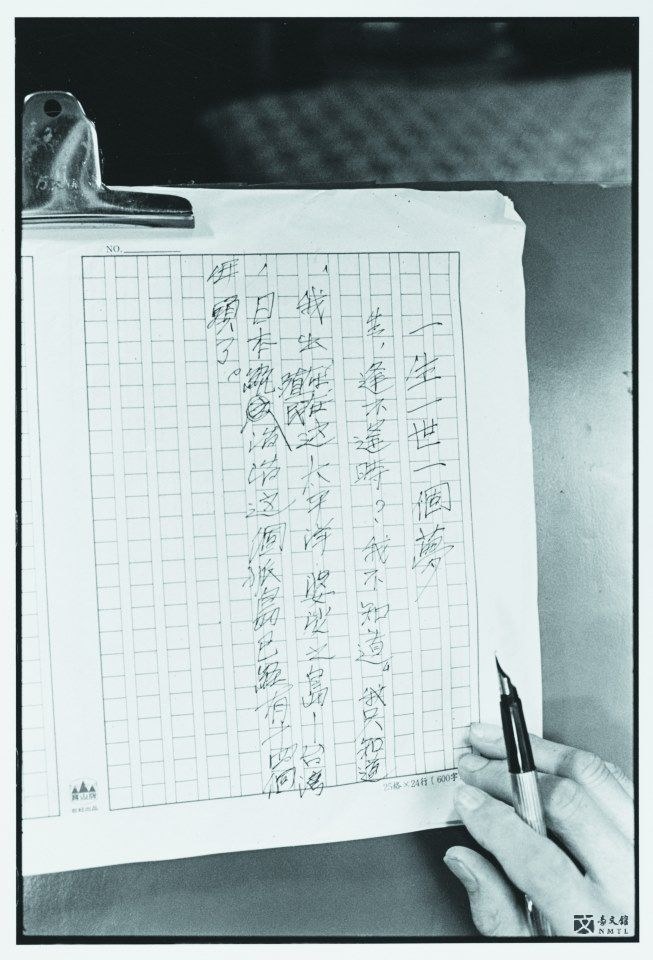 NO.
一生一世一個夢
生,逢不逢時?,我不知道。我只知道
,我出生在这太平洋之島—台灣
殖民
,日本統治这個孤島已經有十四個
年頭了。
25格×24行(600字
台文館
NMTL